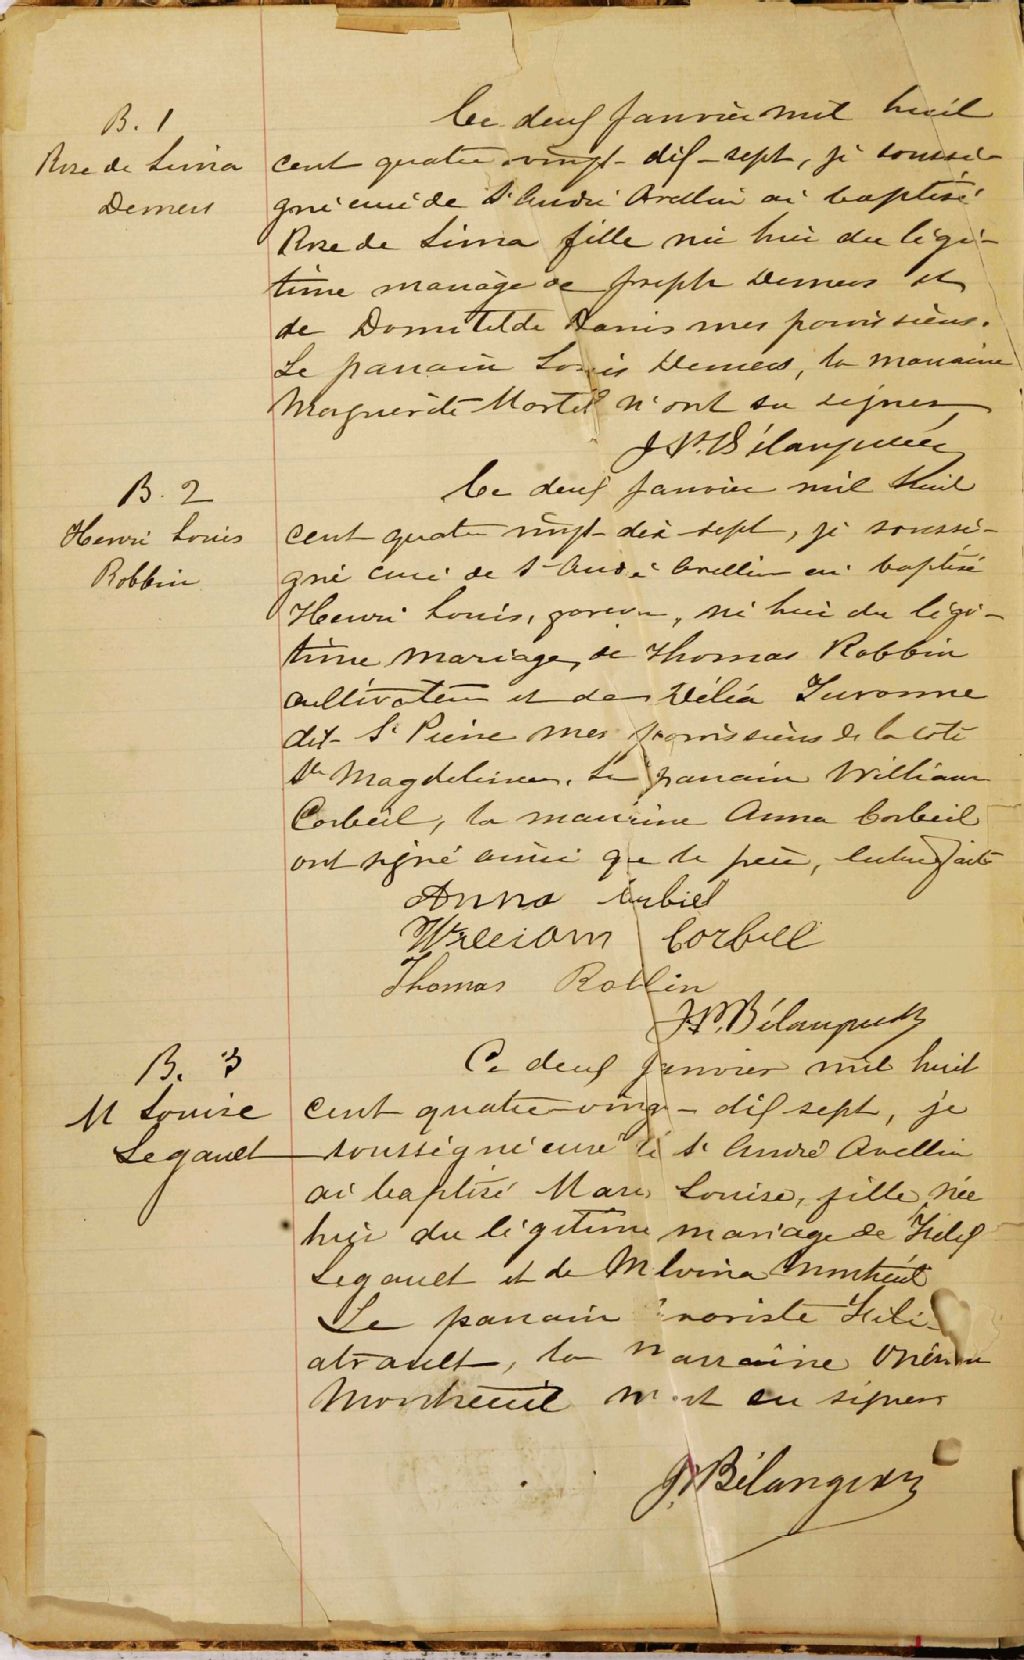 B. 1
Rose de Lima
Demers
Ce deux Janvier mil huit
cent quatre-vingt-dix-sept, je soussi-
gné curé de St André Avellin ai baptisé
Rose de Lima fille née hier du légi-
time mariage de Joseph Demers et
de Domitilde Danis mes paroissiens.
Le parrain Louis Demers, la marraine
Marguerite Martel n'ont su signer
J. Bélanger Ptre
B. 2
Henri Louis
Robbin
Ce deux janvier mil huit
cent quatre vingt-dix-sept, je soussi-
gné curé de St André Avellin ai baptisé
Henri Louis, garçon, né hier du légi-
time mariage de Thomas Robbin
cultivateur et de Délia Turonne
dit St Pierre mes paroissiens de la côte
Ste Magdeleine. Le parrain William
Corbeil, la marraine Anna Corbeil
ont signé ainsi que le père, lecture faite
Anna Corbiel
William Corbell
Thomas Robbin
J. Bélanger Ptre
B. 3
M Louise
Legault
Ce deux janvier mil huit
cent quatre-vingt-dix sept, je
soussigné curé de St André Avellin
ai baptisé Marie Louise, fille née
hier du légitime mariage de
Legault et de Malvina Montreuil
Le parrain
la marraine
Montreuil n'ont su signer
J. Bélanger Ptre